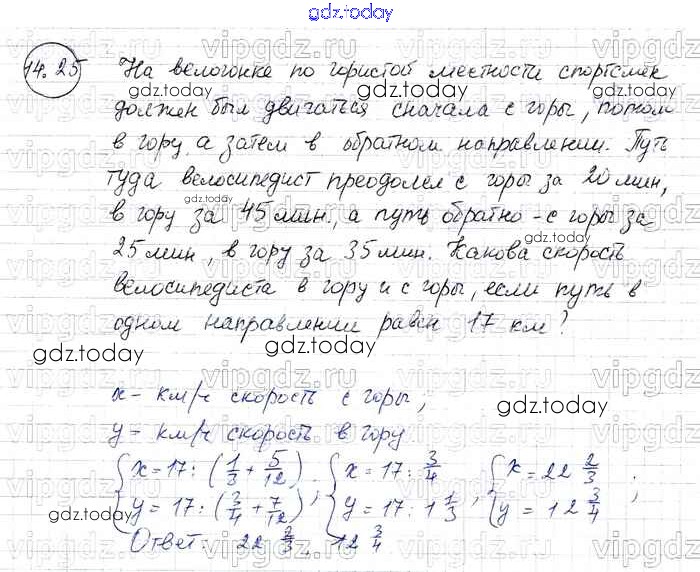 gdz.today
14.25 На велогонке по гористой местности спортсмен
должен был двигаться сначала с горы, потом
в гору, а затем в обратном направлении. Путь
туда велосипедист преодолел с горы за 20 мин,
в гору за 45 мин., а путь обратно - с горы за
25 мин, в гору за 35 мин. Какова скорость
велосипедиста в гору и с горы, если путь в
одном направлении равен 17 км?
x - км/ч скорость с горы;
y = км/ч скорость в гору
{x = 17 : (1/3 + 5/12) ; {x = 17 : 3/4 ; {x = 22 2/3 ;
{y = 17 : (3/4 + 7/12) {y = 17 : 1 1/3 {y = 12 3/4
Ответ: 22 2/3, 12 3/4
vipgdz.ru
gdz.today
gdz.today
gdz.today
gdz.today
gdz.today
gdz.today
gdz.today
gdz.today